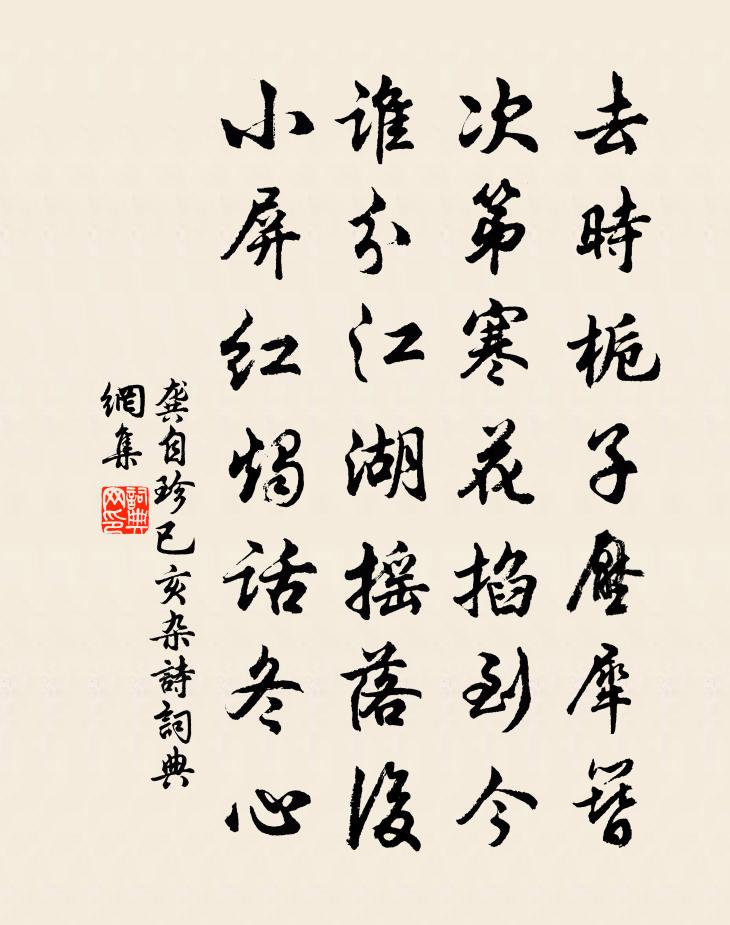 去時栀子壓犀簪
次第寒花掐到今
谁分江湖摇落後
小屏红烛话冬心
龔自珍已亥杂詩詞典
網集
詞典網印